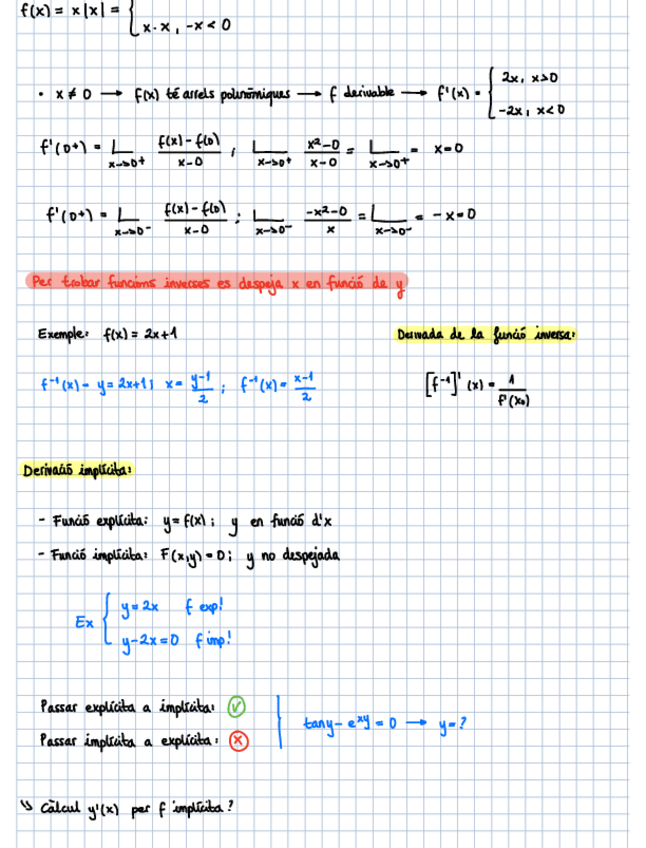 f(x) = x|x| = {
x·x, -x<0
• x≠0 → f(x) té arrels polinòmiques → f derivable → f'(x) = { 2x, x>0
-2x, x<0
f'(0+) = L x→0+ f(x)-f(0) / x-0 ; L x→0+ x²-0 / x-0 = L x→0+ = x=0
f'(0+) = L x→0- f(x)-f(0) / x-0 ; L x→0- -x²-0 / x = L x→0- = -x=0
Per trobar funcions inverses es despeja x en funció de y
Exemple: f(x) = 2x+1
Derivada de la funció inversa:
f⁻¹(x) = y = 2x+1; x = y-1 / 2 ; f⁻¹(x) = x-1 / 2
[f⁻¹]' (x) = 1 / f'(x₀)
Derivació implícita:
- Funció explícita: y = f(x); y en funció d'x
- Funció implícita: F(x,y) = 0; y no despejada
Ex { y = 2x f exp!
y-2x=0 f imp!
Passar explícita a implícita: ✓
Passar implícita a explícita: ✗
tan y - e^xy = 0 → y=?
↳ Càlcul y'(x) per f implícita?